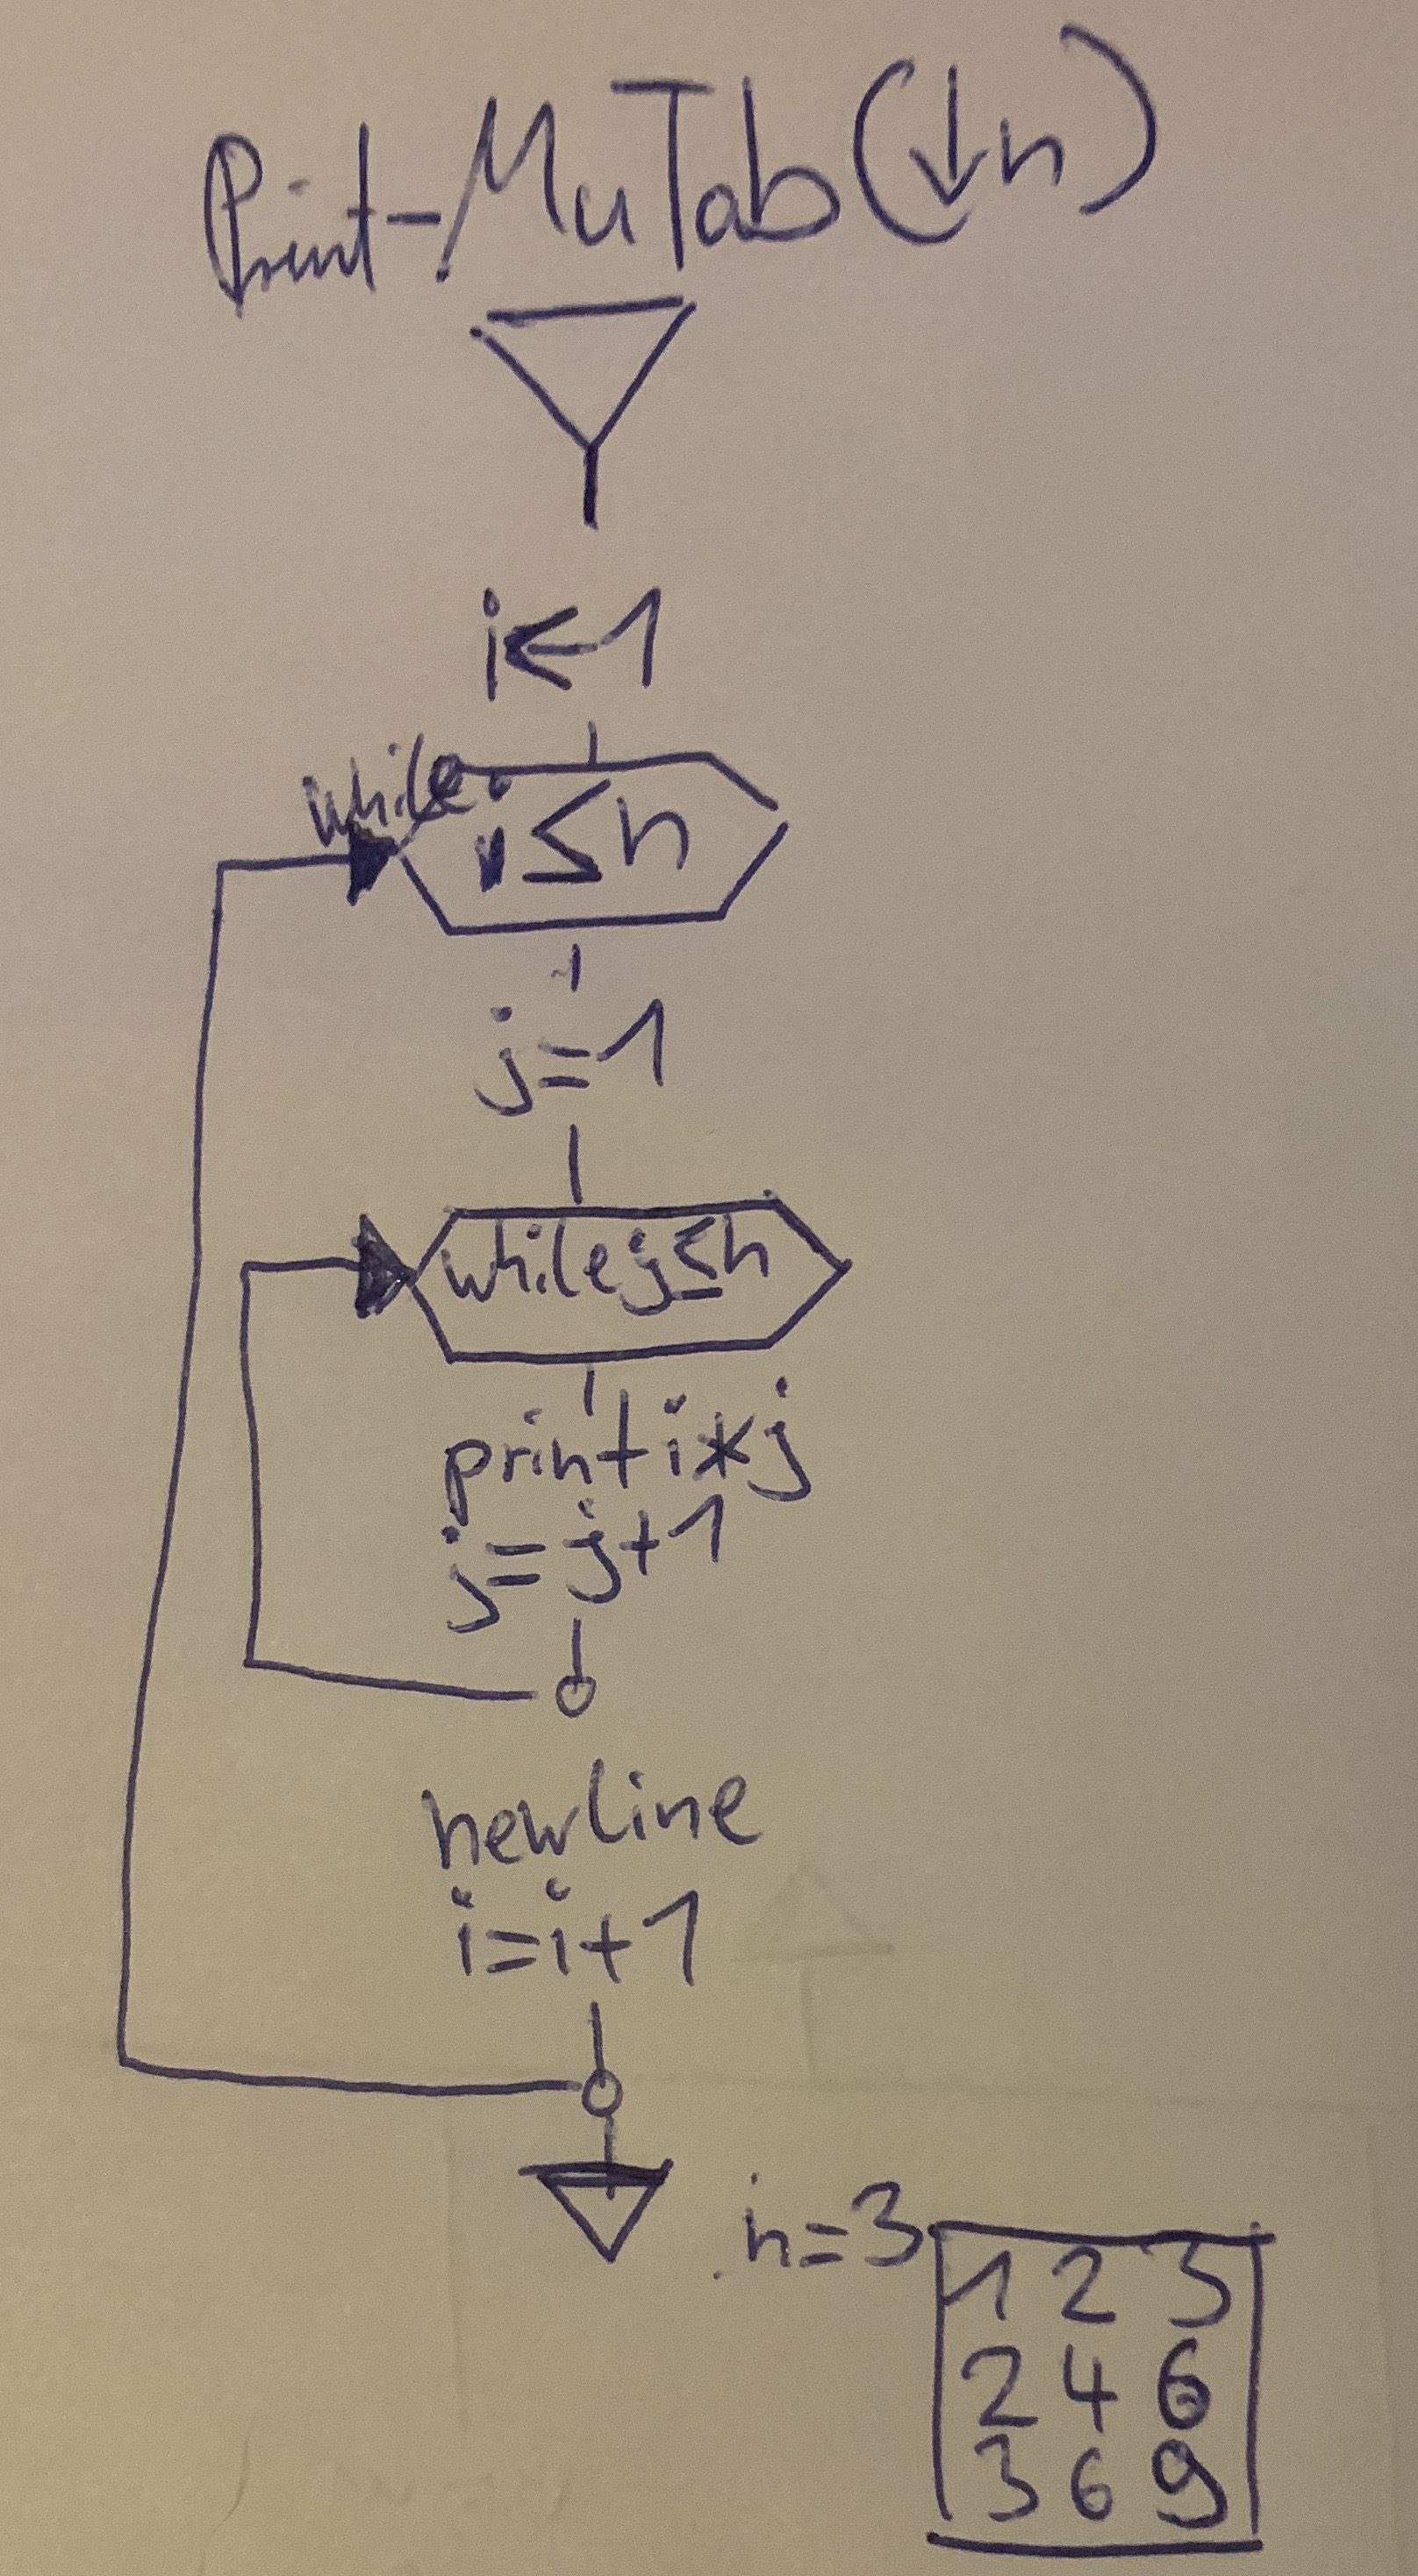 Print-MuTab(↓n)
i←1
while
i≤n
j=1
while j≤n
print i*j
j=j+1
newline
i=i+1
n=3
1 2 3
2 4 6
3 6 9